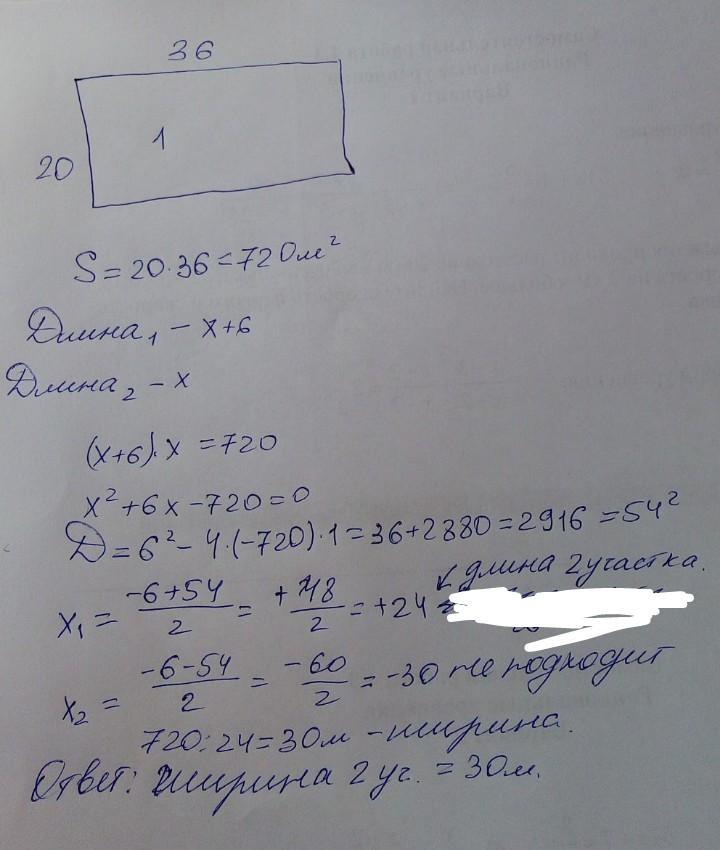 36
1
20
S = 20·36 = 720м²
Длина₁ – x+6
Длина₂ – x
(x+6)·x = 720
x²+6x–720=0
D = 6² – 4·(–720)·1 = 36+2880 = 2916 = 54²
x₁ = (–6+54)/2 = +48/2 = +24 ↙ длина 2 участка.
x₂ = (–6–54)/2 = –60/2 = –30 не подходит
720:24=30м – ширина.
Ответ: ширина 2 уч. = 30м.